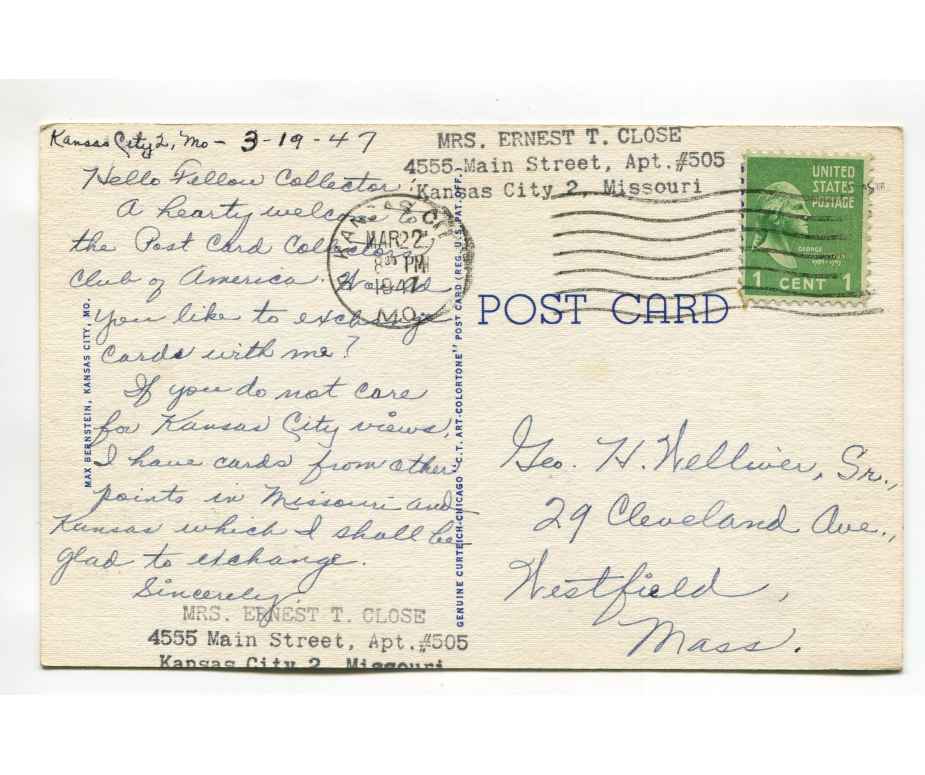 Kansas City 2, Mo - 3-19-47
Hello Fellow Collector!
A hearty welcome to
the Post Card Collectors
Club of America. Would
you like to exchange
cards with me?
If you do not care
for Kansas City views,
I have cards from other
points in Missouri and
Kansas which I shall be
glad to exchange.
Sincerely,
MRS. ERNEST T. CLOSE
4555 Main Street, Apt. #505
Kansas City 2, Missouri
MAX BERNSTEIN, KANSAS CITY, MO.
GENUINE CURTEICH-CHICAGO "C.T. ART-COLORTONE" POST CARD (REG. U.S. PAT. OFF.)
MRS. ERNEST T. CLOSE
4555 Main Street, Apt. #505
Kansas City 2, Missouri
KANSAS CITY
MAR 22
8 PM
1947
MO.
UNITED
STATES
POSTAGE
GEORGE
1 CENT 1
POST CARD
Geo. H. Welliver, Sr.,
29 Cleveland Ave.,
Westfield,
Mass.